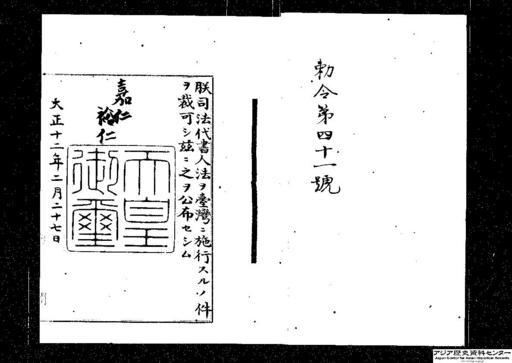 勅令第四十一號
朕司法代書人法ヲ臺灣ニ施行スルノ件
ヲ裁可シ茲ニ之ヲ公布セシム
嘉仁
裕仁
天皇御璽
大正十二年二月二十七日
アジア歴史資料センター
Japan Center for Asian Historical Records